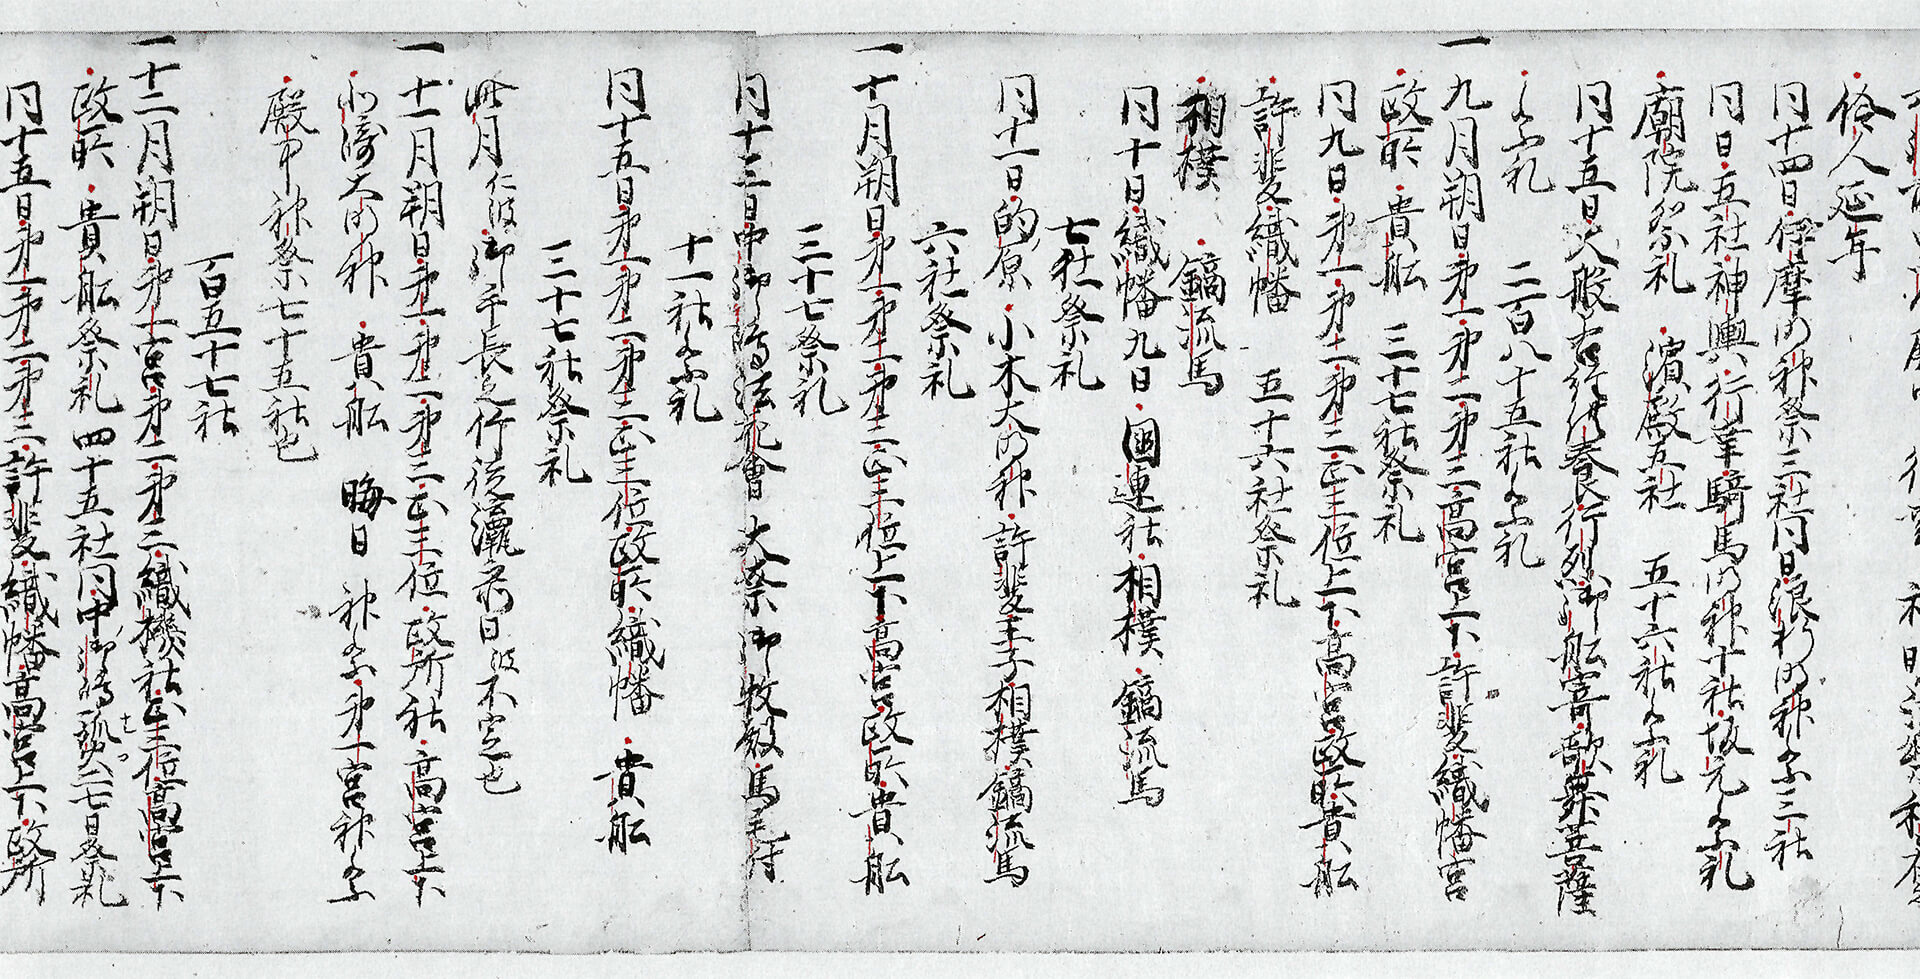 伶人延年
同十四日伊摩明神祭三社同日浪折明神祭三社
同日五社神輿行幸騎馬明神十社坂元祭礼
廟院祭礼 濱殿五社 五十六社祭礼
同十五日大般若経供養行列御舩寄歌舞菩薩
祭礼 二百八十五社祭礼
一九月朔日第一第二第三高宮上下許斐織幡宮
政所 貴舩 三十七社祭礼
同九日第一第二第三正三位上下高宮政所貴舩
許斐織幡 五十六社祭礼
相撲 鏑流馬
同十日織幡九日國連社相撲鏑流馬
七社祭礼
同十一日的原小木大明神許斐王子相撲鏑流馬
六社祭礼
一十月朔日第一第二第三正三位上下高宮政所貴舩
三十七祭礼
同十三日中御嶋法花會大祭御牧殿馬毛付
十一社祭礼
同十五日第一第二第三正三位政所織幡貴舩
三十七社祭礼
此月 御手長之行 日 不定也
一十一月朔日第一第二第三正三位政所社高宮上下
大明神 貴舩 晦日 神祭第一宮神祭
殿中神祭七十五社也
百五十七社
一十二月朔日第一宮第二第三織機社正三位高宮上下
政所貴舩祭礼四十五社同中御嶋 二七日祭礼
同十五日第一第二第三許斐織幡高宮上下政所